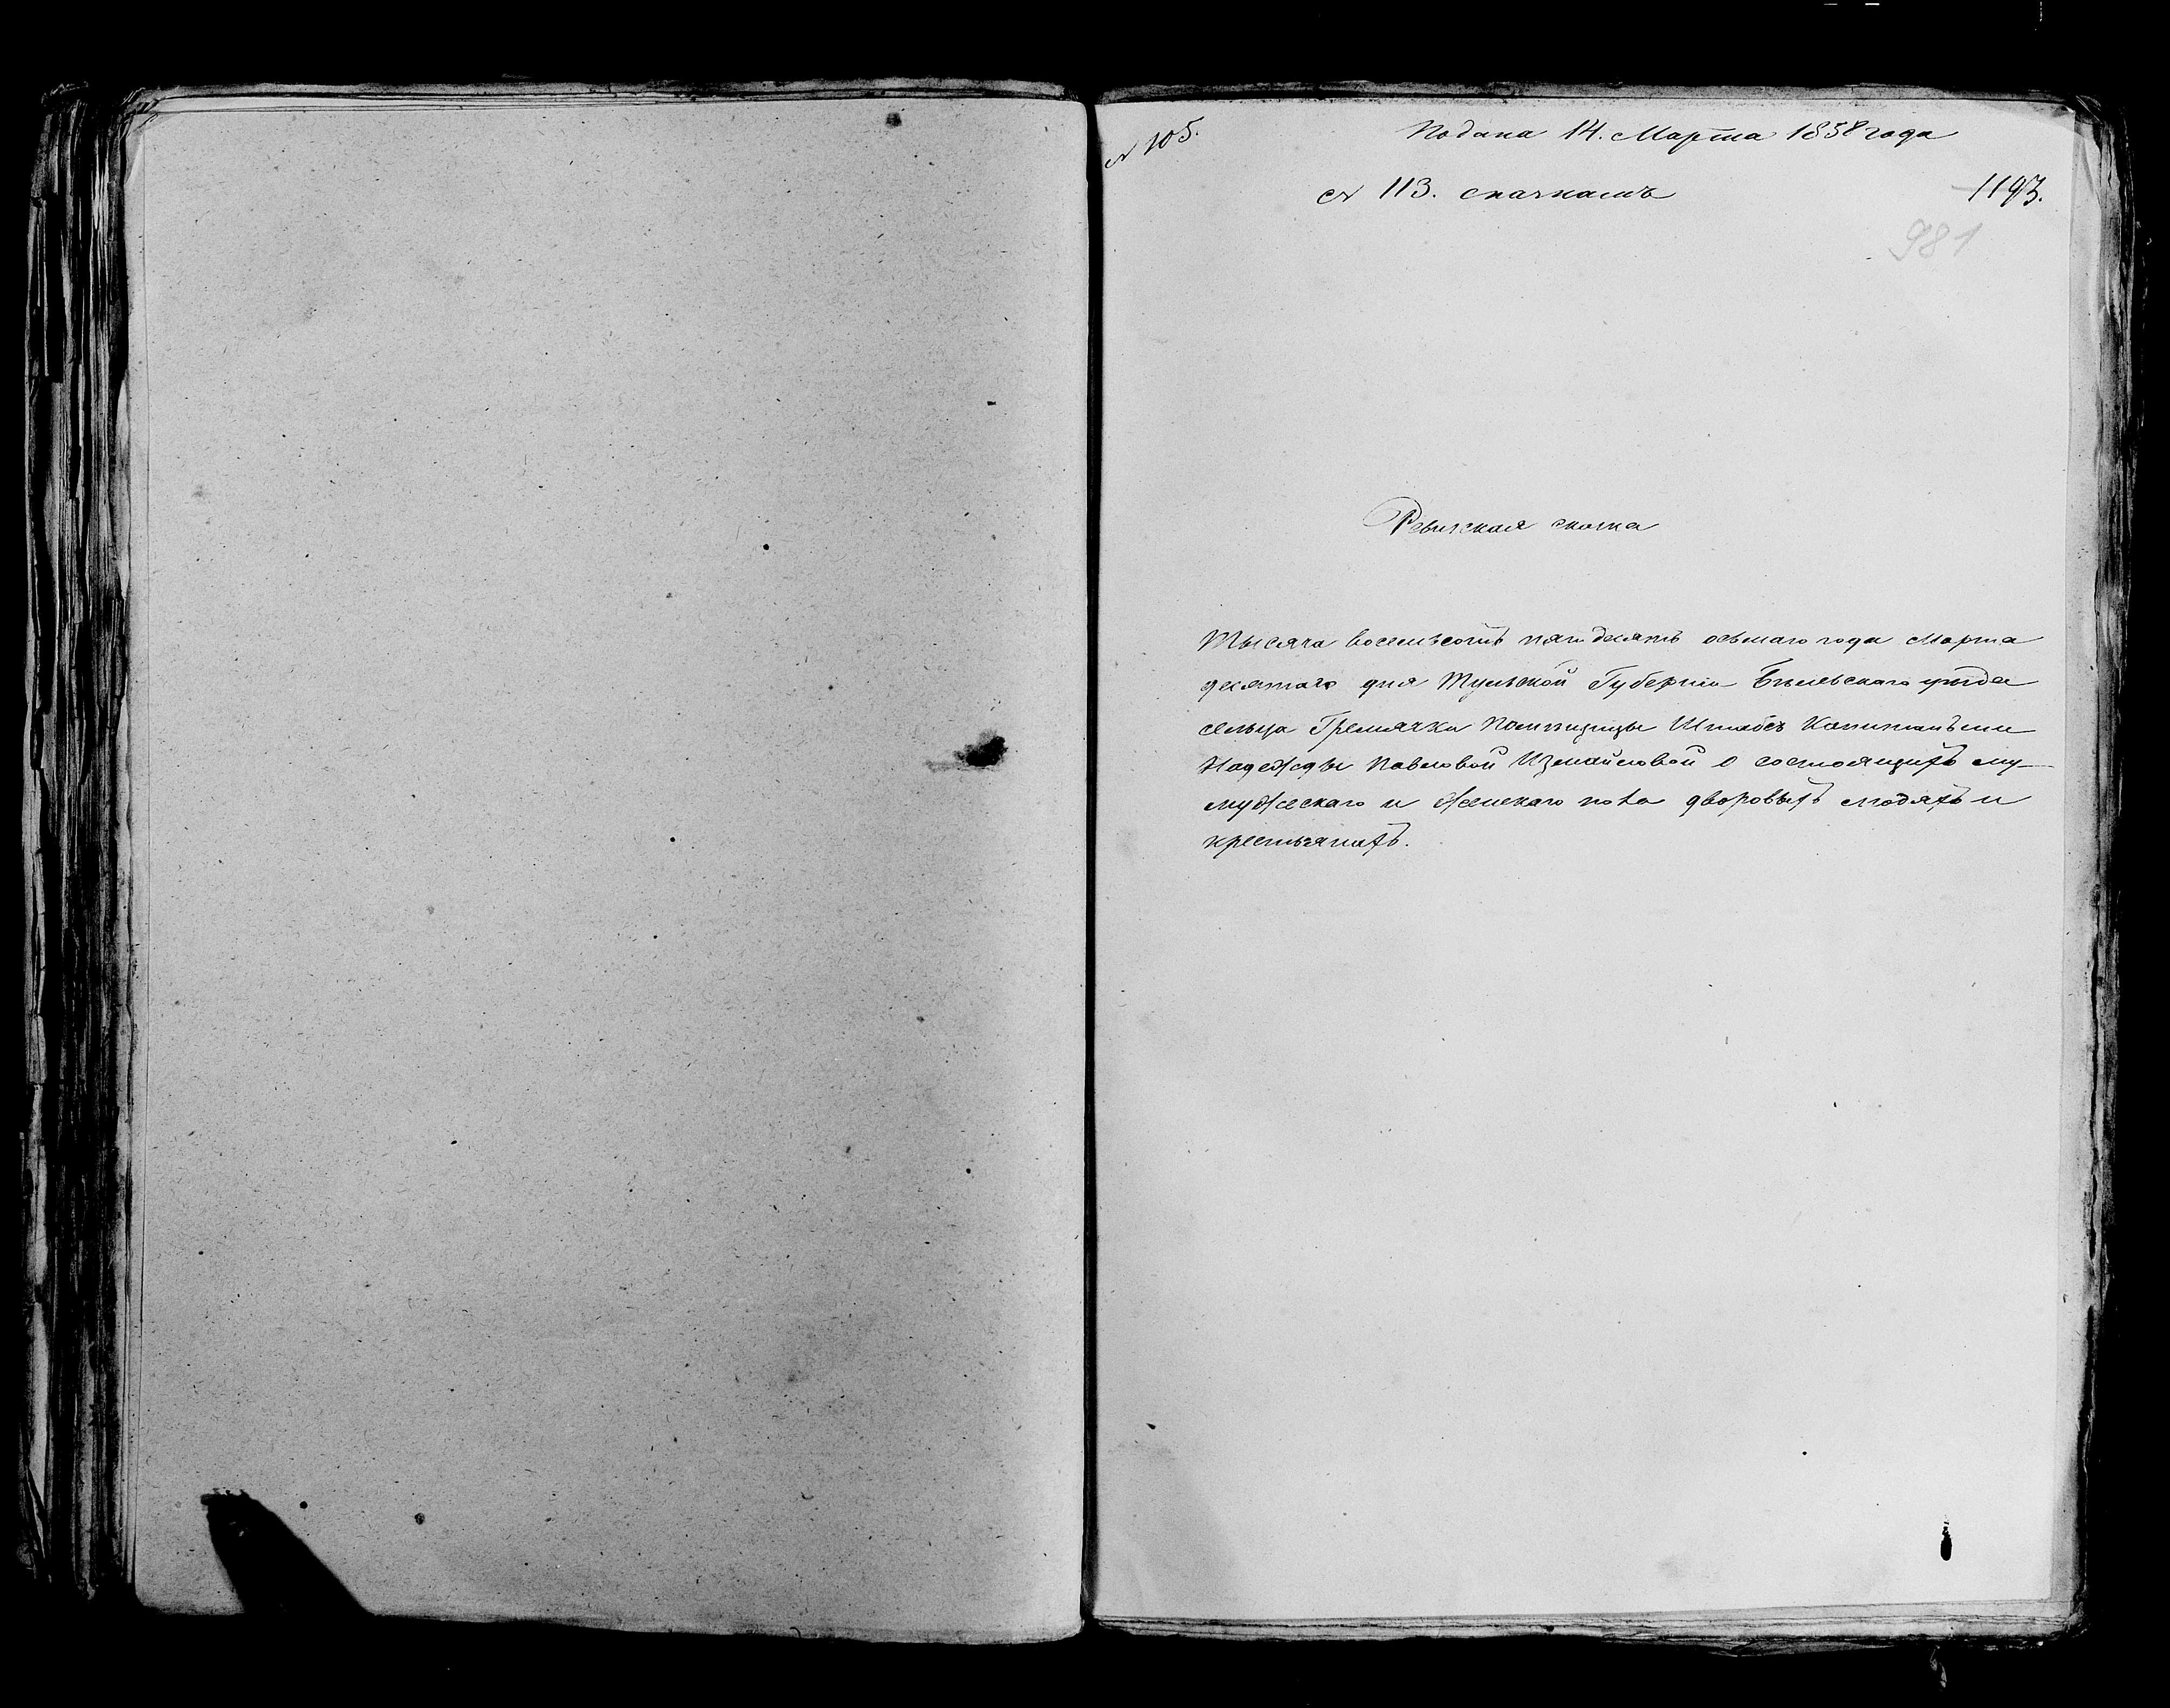 № 105.
Подана 14. Марта 1858 года
№ 113. скачкамъ
1193.
981
Ревизская скаска
Тысяча восемьсотъ пятьдесятъ осьмаго года Марта
десятаго дня Тульской Губерніи Бѣлевскаго уѣзда
сельца Гремячки Помѣщицы Штабсъ Капитанъши
Надежды Павловой Измайловой о состоящихъ му-
мужескаго и женскаго пола дворовыхъ людяхъ и
крестьянахъ.